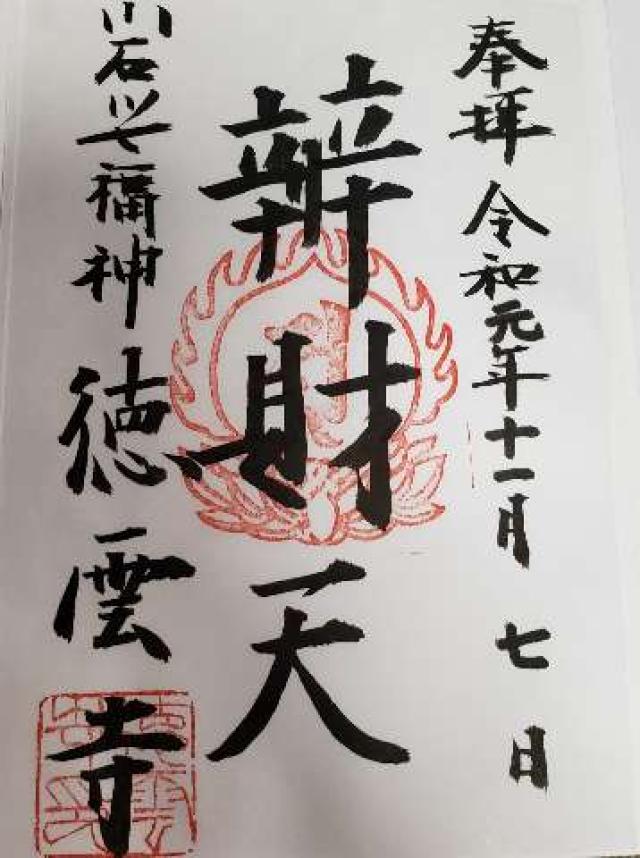 奉拝 令和元年十一月七日
辨財天
小石川七福神 徳雲寺